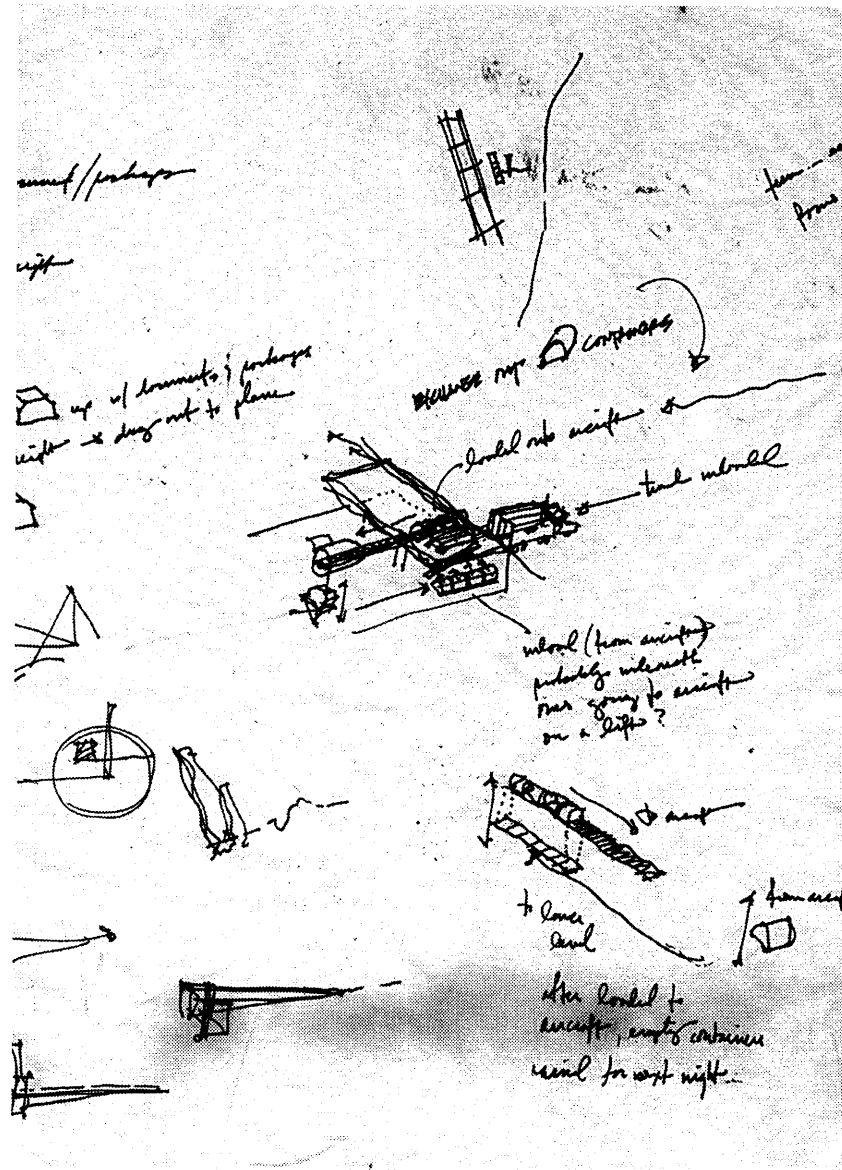 /perhaps
night
from
from
up w/ documents; packages
night → drag out to plane
onto CONTAINERS
loaded onto aircraft
truck unload
unload (from aircraft)
probably underneath
ones going to aircraft
on a lift?
to aircraft
to lower
level
from
after loaded to
aircraft, empty containers
for next night...